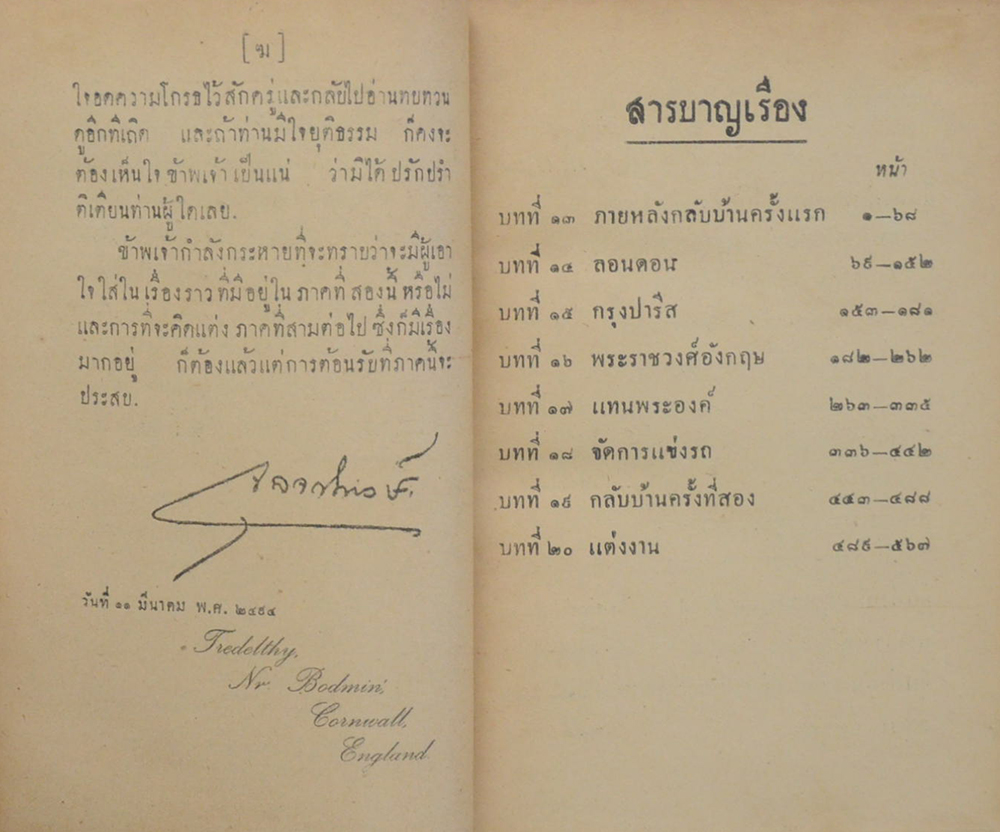 [ ฆ ]
ใจอดความโกรธไว้สักครู่และกลับไปอ่านทบทวน
ดูอีกทีเถิด และถ้าท่านมีใจยุติธรรม ก็คงจะ
ต้องเห็นใจ ข้าพเจ้า เป็นแน่ ว่ามิได้ ปรักปรำ
ติเตียนท่านผู้ใดเลย.
ข้าพเจ้ากำลังกระหายที่จะทราบว่าจะมีผู้เอา
ใจใส่ใน เรื่องราว ที่มีอยู่ใน ภาคที่ สองนี้ หรือไม่
และการที่จะคิดแต่ง ภาคที่สามต่อไป ซึ่งก็มีเรื่อง
มากอยู่ ก็ต้องแล้วแต่การต้อนรับที่ภาคนี้จะ
ประสบ.
วันที่ ๑๑ มีนาคม พ.ศ. ๒๔๙๔
Tredethy,
Nr. Bodmin,
Cornwall,
England.
สารบาญเรื่อง
หน้า
บทที่ ๑๓ ภายหลังกลับบ้านครั้งแรก ๑—๖๘
บทที่ ๑๔ ลอนดอน ๖๙—๑๕๒
บทที่ ๑๕ กรุงปารีส ๑๕๓—๑๘๑
บทที่ ๑๖ พระราชวงศ์อังกฤษ ๑๘๒—๒๖๒
บทที่ ๑๗ แทนพระองค์ ๒๖๓—๓๓๕
บทที่ ๑๘ จัดการแข่งรถ ๓๓๖—๔๔๒
บทที่ ๑๙ กลับบ้านครั้งที่สอง ๔๔๓—๔๘๘
บทที่ ๒๐ แต่งงาน ๔๘๙—๕๖๗